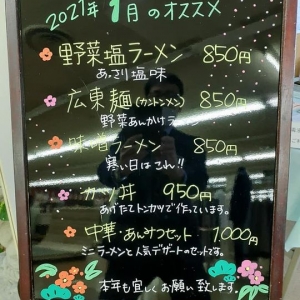 2021年 1月のオススメ
野菜塩ラーメン 850円
あっさり塩味
広東麺(カントンメン) 850円
野菜あんかけラーメン
味噌ラーメン 850円
寒い日はこれ!!
カツ丼 950円
あげたてトンカツで作っています。
中華・あんみつセット 1,000円
ミニラーメンと人気デザートのセットです。
本年も宜しくお願い致します。